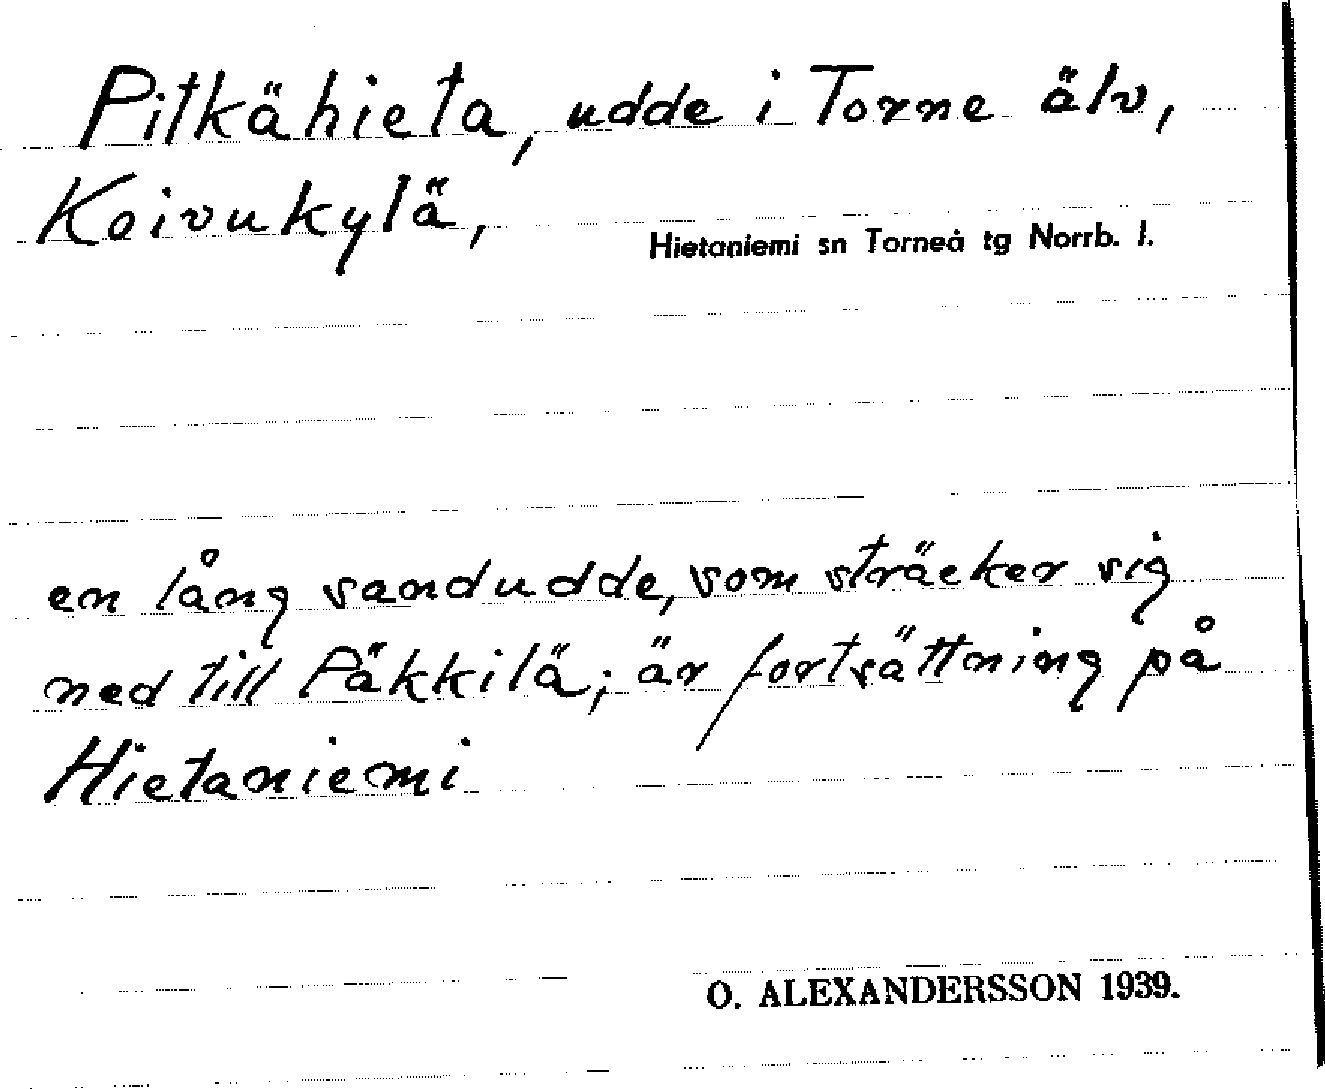 Pitkähieta, udde i Torne älv,
Koivukylä,
Hietaniemi sn Torneå tg Norrb. l.
en lång sandudde, som sträcker sig
ned till Päkkilä; är fortsättning på
Hietaniemi
O. ALEXANDERSSON 1939.